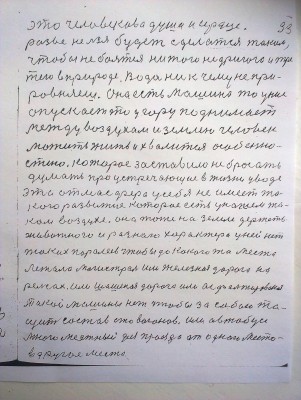 93
это человекова душа и сердце.
разве нельзя будет сделатся таким,
чтобы не боятся ни того ни другого и тре
тию в природе. Вода ни к чему не при-
ровнялась. Она есть машина то вниз
опускает то у гору поднимает
между воздухам и землею человек
может жить и хвалится особенно-
стию. которое заставило не бросать
думать про устрегающие в жизни уводе
эта атмасфера у себя не имеет та-
кого развитие которое есть у нашем та-
ком воздухе. она тоже на земле держит
животного и разнаго характера у ней нет
таких поралев чтобы до какого то места
лежала магистрал или железная дорога на
рельсах, или шашеная дорога или асфалтирована
такой машины нет чтобы за собою та-
щит состав сто вагонов, или автобус
много местный для проезда от одного места
в другое место.